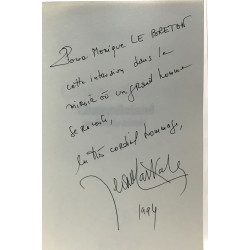 Pour Monique LE BRETON
cette intrusion dans le
miroir où un grand homme
se raconte,
en très cordial hommage,
Jean Markale
1994